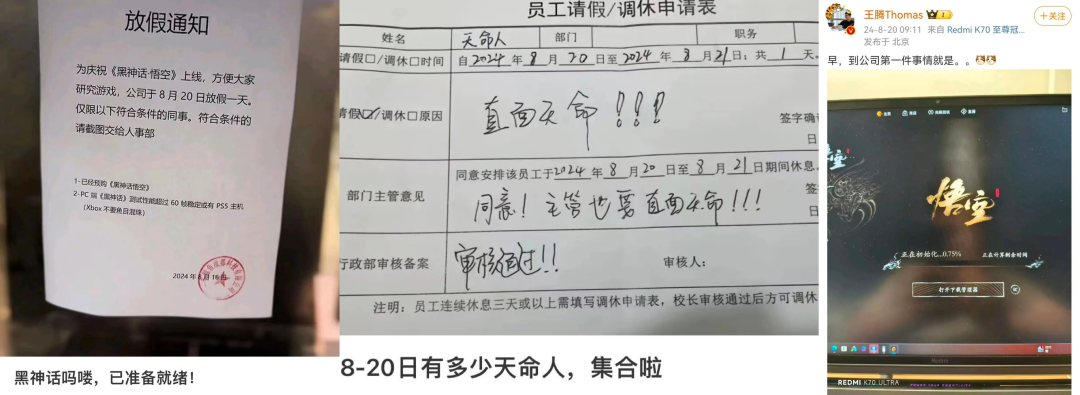 放假通知
为庆祝《黑神话·悟空》上线，方便大家
研究游戏，公司于8月20日放假一天。
仅限以下符合条件的同事。符合条件的
请截图交给人事部
1-已经预购《黑神话·悟空》
2-PC 端《黑神话》测试性能超过 60 帧稳定或有 PS5 主机
（Xbox 不要鱼目混珠）
2024年8月16日
黑神话吗喽，已准备就绪！
员工请假/调休申请表
姓名 天命人 部门 职务
请假□/调休□时间 自2024年8月20日至2024年8月21日；共1天。
请假☑/调休□原因 直面天命！！！
签字确
日
部门主管意见 同意安排该员工于2024年8月20日至8月21日期间休息。
同意！主管也要直面天命！！！
签
日
行政部审核备案 审核通过！！ 审核人：
注明：员工连续休息三天或以上需填写调休申请表，校长审核通过后方可调休
8-20日有多少天命人，集合啦
王腾Thomas
+关注
24-8-20 09:11 来自 Redmi K70 至尊冠...
发布于 北京
早，到公司第一件事情就是。。
悟空
正在初始化...0.75% 正在计算剩余时间
打开下载管理器
Redmi
REDMI K70 ULTRA